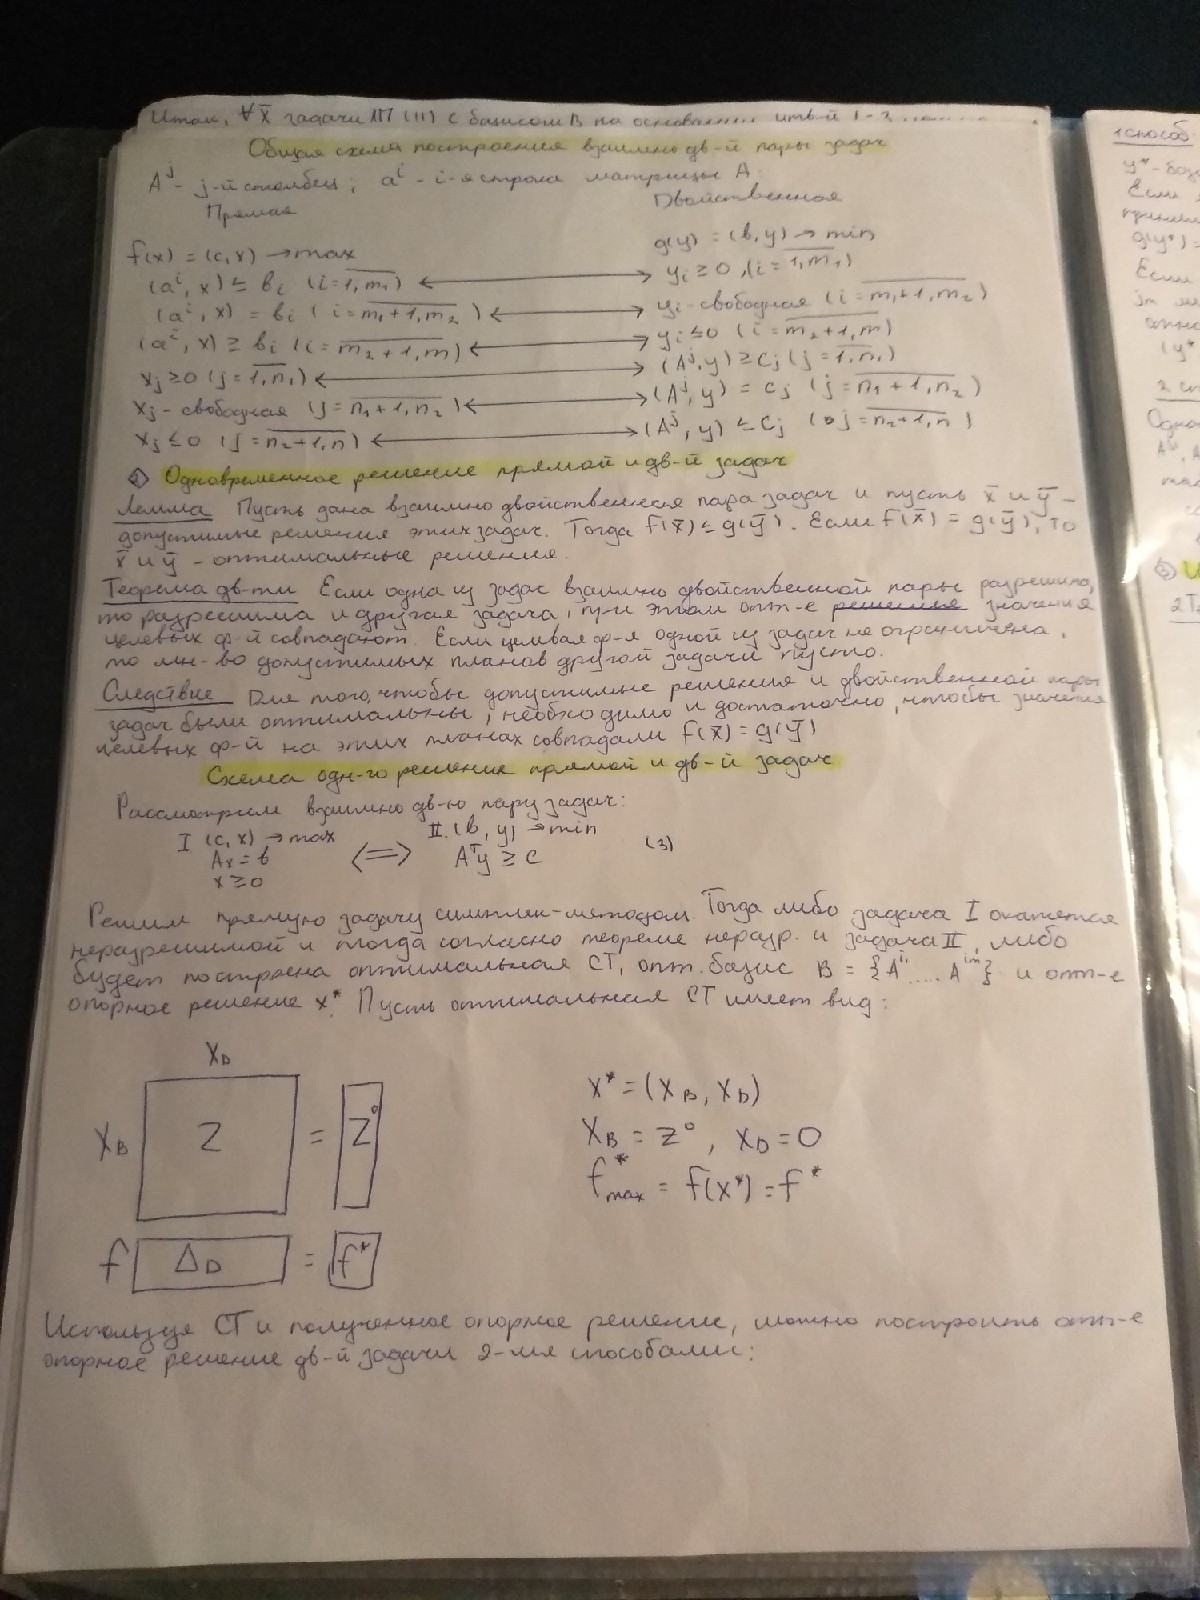 Итак, ∀ x̄ задачи ЛП (11) с базисом B на основании
Общая схема построения взаимно дв-й пары задач
Aʲ - j-й столбец; aⁱ - i-я строка матрицы A:
Прямая Двойственная
f(x) = (c,x) → max g(y) = (b,y) → min
(aⁱ, x) ≤ bᵢ (i = 1,m₁) ⟷ yᵢ ≥ 0, (i = 1,m₁)
(aⁱ, x) = bᵢ (i = m₁+1,m₂) ⟷ yᵢ - свободная (i = m₁+1,m₂)
(aⁱ, x) ≥ bᵢ (i = m₂+1,m) ⟷ yᵢ ≤ 0 (i = m₂+1,m)
xⱼ ≥ 0 (j = 1,n₁) ⟷ (Aʲ, y) ≥ cⱼ (j = 1,n₁)
xⱼ - свободная (j = n₁+1,n₂) ⟷ (Aʲ, y) = cⱼ (j = n₁+1,n₂)
xⱼ ≤ 0 (j = n₂+1,n) ⟷ (Aʲ, y) ≤ cⱼ (j = n₂+1,n)
Одновременное решение прямой и дв-й задач
Лемма Пусть дана взаимно двойственная пара задач и пусть x̄ и ȳ -
допустимые решения этих задач. Тогда f(x̄) ≤ g(ȳ). Если f(x̄) = g(ȳ), то
x̄ и ȳ - оптимальные решения.
Теорема дв-ти Если одна из задач взаимно двойственной пары разрешима,
то разрешима и другая задача, при этом опт-е решения значения
целевых ф-й совпадают. Если целевая ф-я одной из задач не ограничена,
то мн-во допустимых планов другой задачи пусто.
Следствие Для того, чтобы допустимые решения и двойственной пары
задач были оптимальны, необходимо и достаточно, чтобы значения
целевых ф-й на этих планах совпадали f(x̄) = g(ȳ)
Схема одн-го решение прямой и дв-й задач
Рассмотрим взаимно дв-ю пару задач:
I (c,x) → max II. (b,y) → min
Ax = b ⟺ Aᵀy ≥ c (3)
x ≥ 0
Решим прямую задачу симплекс-методом. Тогда либо задача I окажется
неразрешимой и тогда согласно теореме неразр. и задача II, либо
будет построена оптимальная СТ, опт. базис B = {Aⁱ¹ ..... Aⁱᵐ} и опт-е
опорное решение x*. Пусть оптимальная СТ имеет вид:
x_D
x_B Z = Z⁰
f Δ_D = f*
x* = (x_B, x_D)
x_B = z⁰, x_D = 0
f*max = f(x*) = f*
Используя СТ и полученное опорное решение, можно построить опт-е
опорное решение дв-й задачи 2-мя способами:
1 способ
y* - баз
Если
g(y*) =
Если
(y*
2 сп
Одно
2 Т